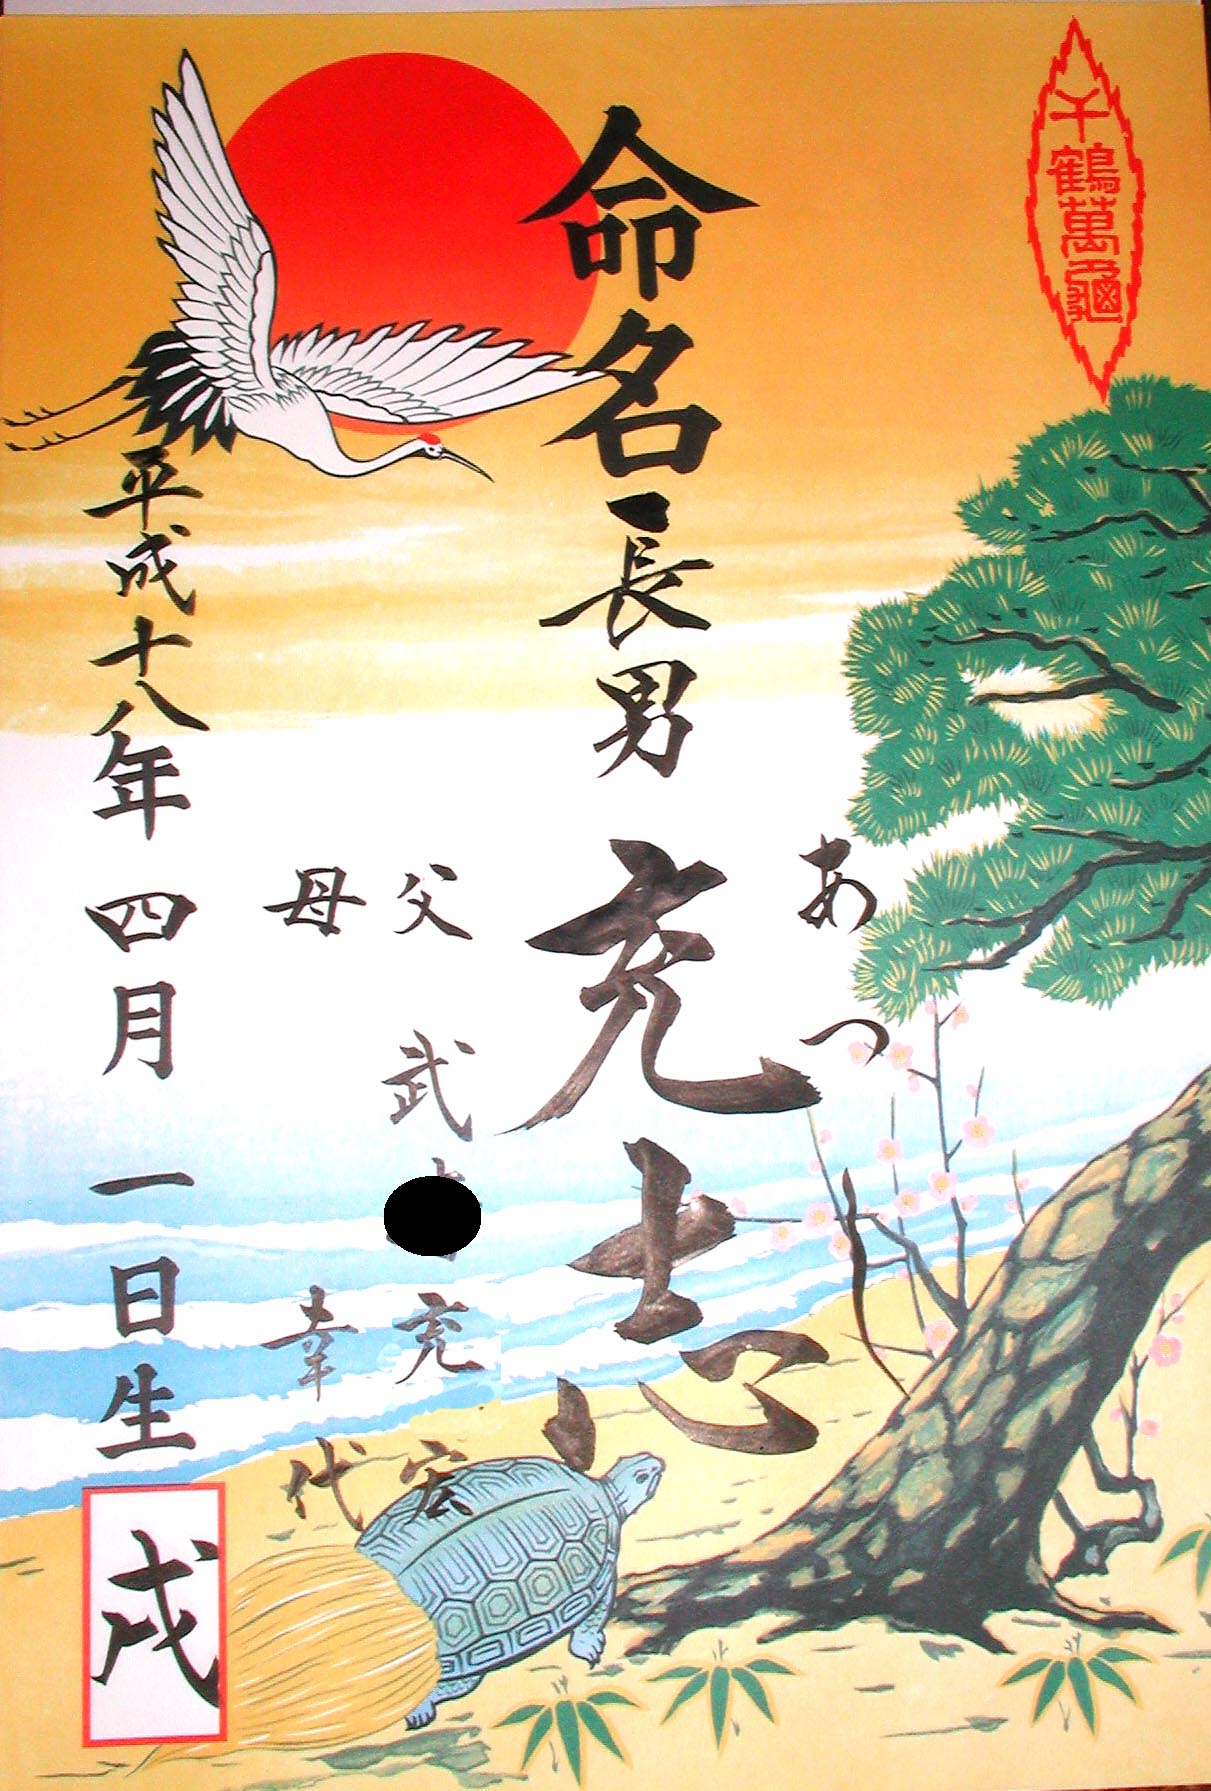 千鶴萬龜
あつし
命名長男 充志
父 武 充宏
母 幸代
平成十八年四月一日生
戌